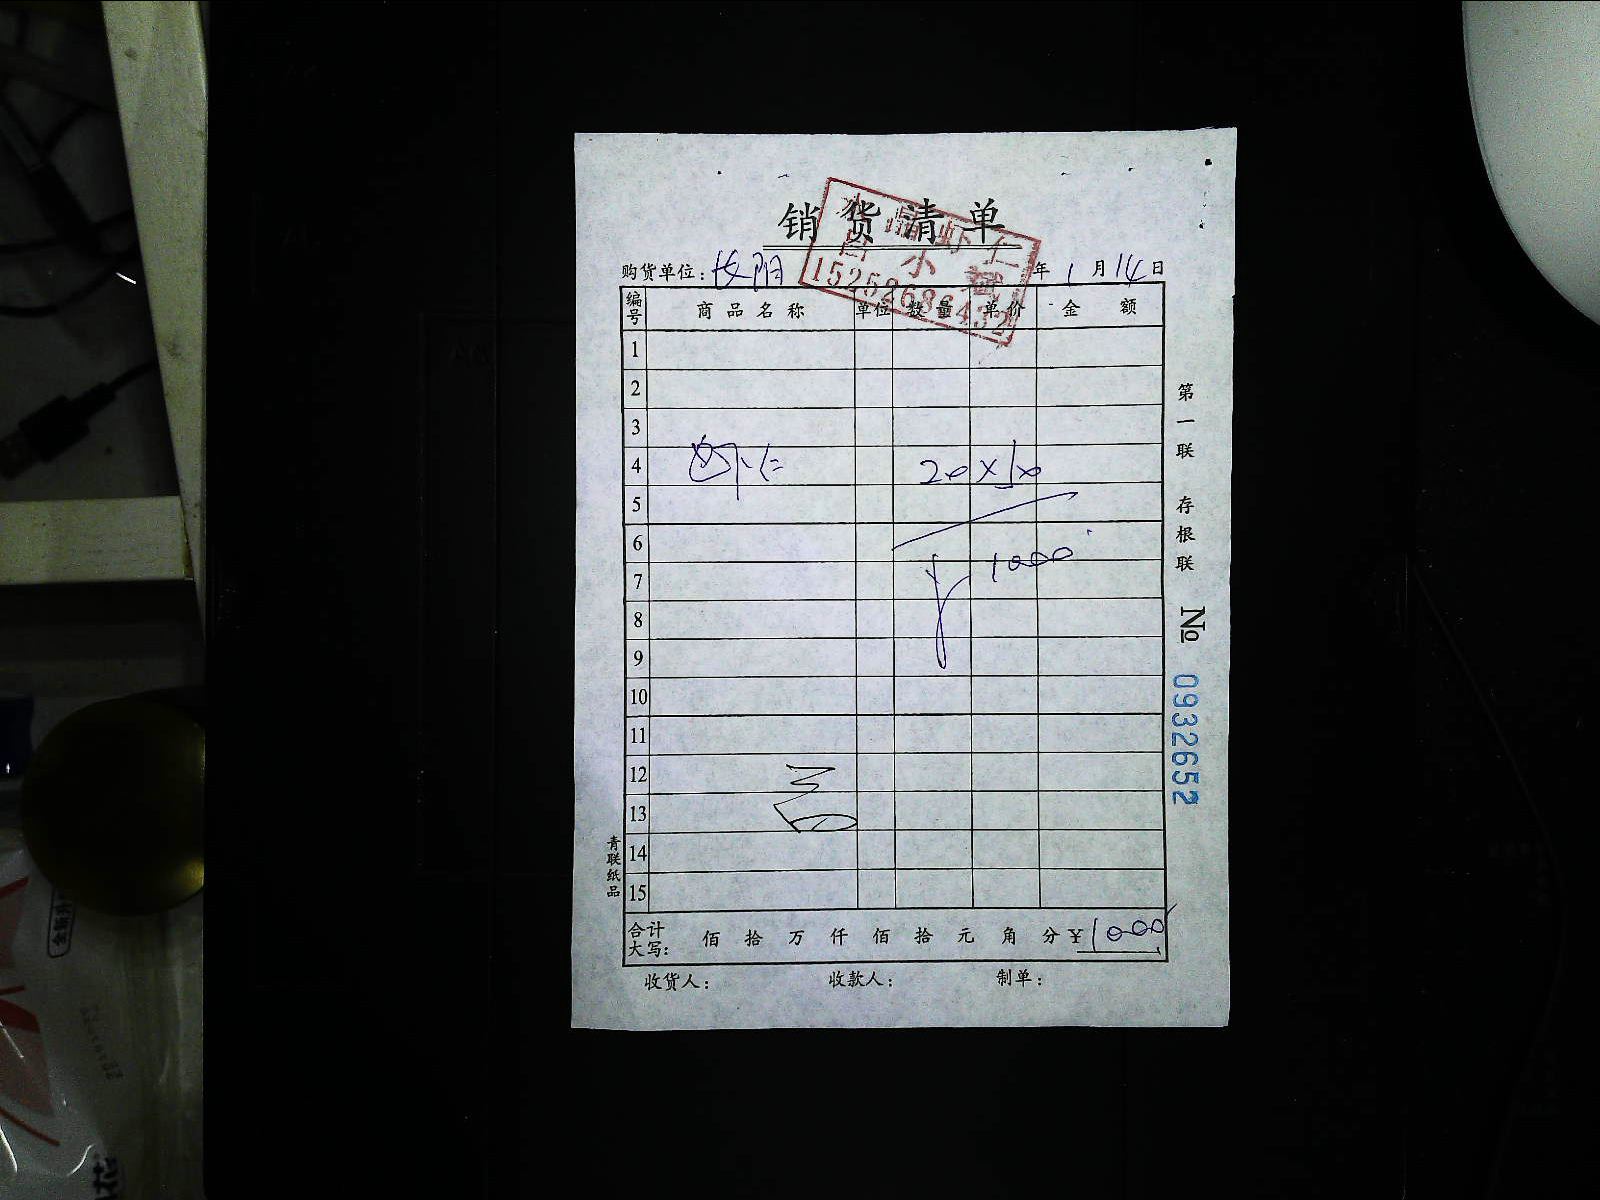 销货清单
水晶虾仁
小斌
15252686432
购货单位：长阳 年 1 月 14 日
编号 商品名称 单位 数量 单价 金额
1
2
3
4 虾仁 20 X 50
5
6
7 1000
8
9
10
11
12
13
14
15
合计大写： 佰 拾 万 仟 佰 拾 元 角 分 ¥1000
收货人： 收款人： 制单：
第一联 存根联
№ 0932652
青联纸品